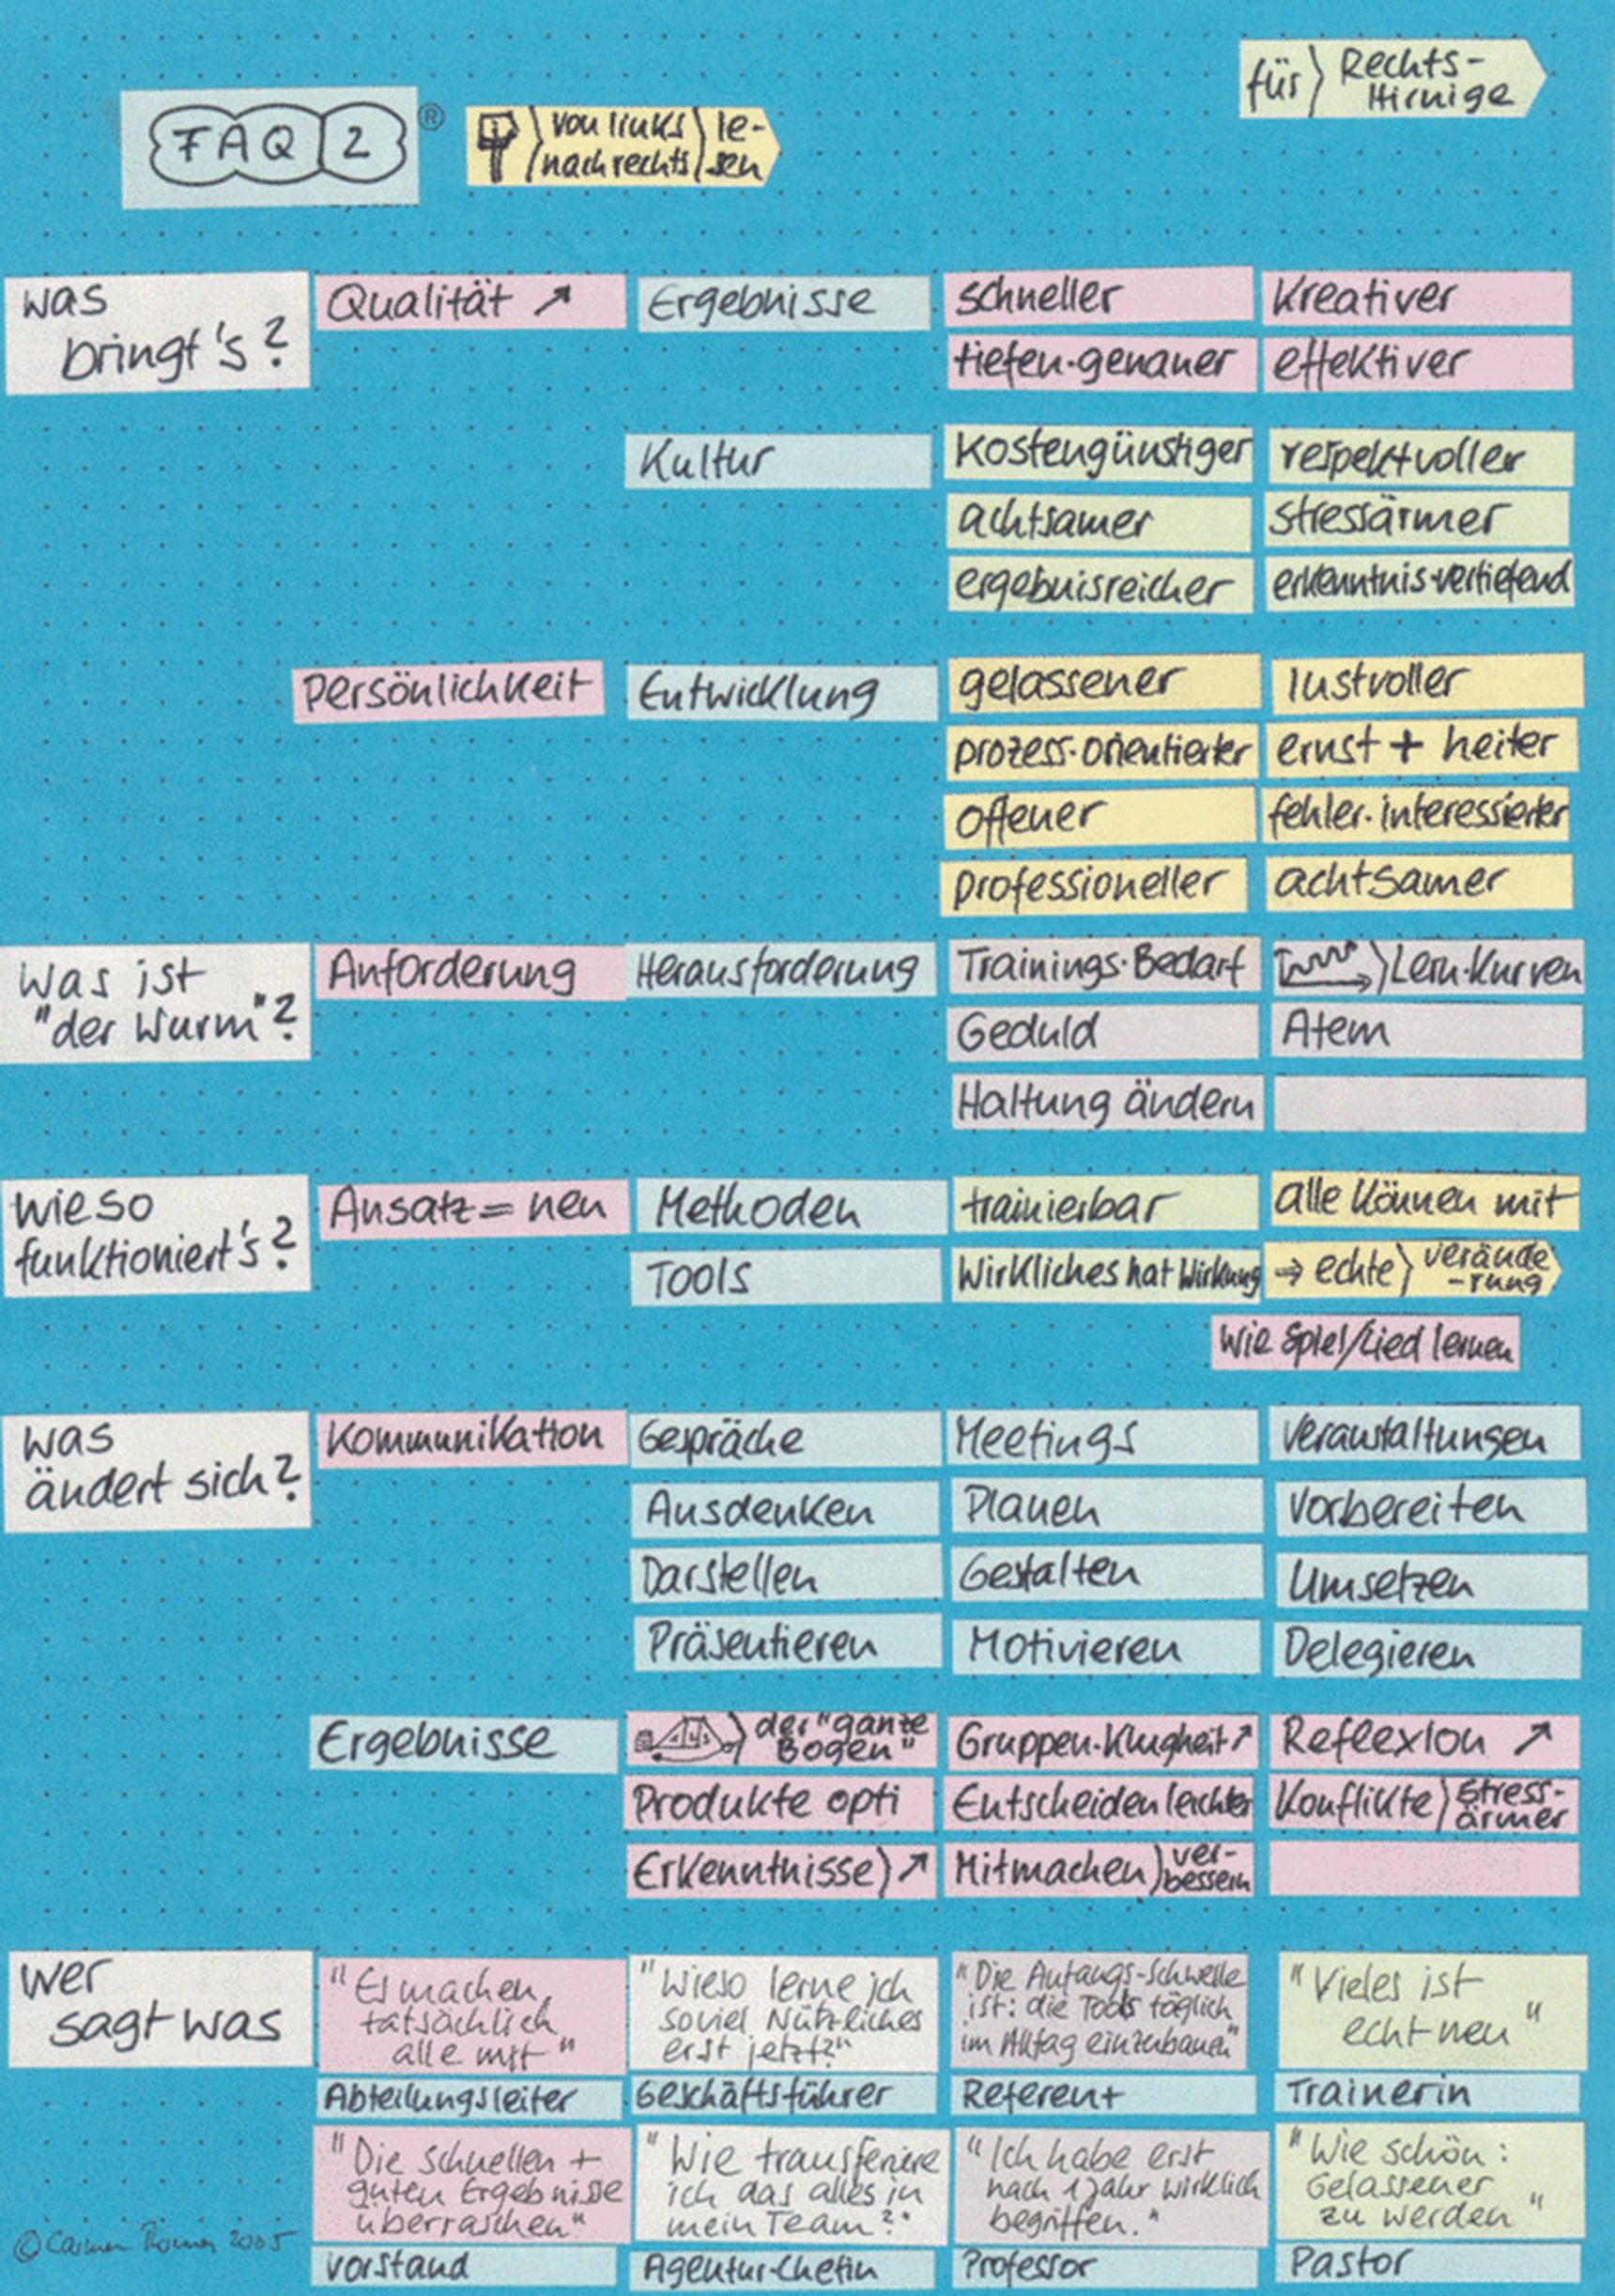 für Rechts-
Hirnige
FAQ 2 ®
von links
nach rechts
le-
sen
was
bringt's?
Qualität ↗
Ergebnisse
schneller
kreativer
tiefen-genauer
effektiver
Kultur
Kostengünstiger
respektvoller
achtsamer
stressärmer
ergebnisreicher
erkenntnis-vertiefend
Persönlichkeit
Entwicklung
gelassener
lustvoller
prozess-orientierter
ernst + heiter
offener
fehler-interessierter
professioneller
achtsamer
Was ist
"der Wurm"?
Anforderung
Herausforderung
Trainings-Bedarf
Lern-Kurven
Geduld
Atem
Haltung ändern
wieso
funktioniert's?
Ansatz = neu
Methoden
trainierbar
alle können mit
Tools
Wirkliches hat Wirkung
⇒ echte verände
-rung
Wie Spiel/Lied lernen
was
ändert sich?
Kommunikation
Gespräche
Meetings
Veranstaltungen
Ausdenken
Planen
Vorbereiten
Darstellen
Gestalten
Umsetzen
Präsentieren
Motivieren
Delegieren
Ergebnisse
der "ganze
Bogen"
Gruppen-Klugheit ↗
Reflexion ↗
Produkte opti
Entscheiden leichter
Konflikte stress-
ärmer
Erkenntnisse ↗
Mitmachen ver-
bessern
wer
sagt was
"Es machen
tatsächlich
alle mit"
"Wieso lerne ich
soviel Nützliches
erst jetzt?"
"Die Anfangs-Schwelle
ist: die Tools täglich
im Alltag einzubauen"
"Vieles ist
echt neu"
Abteilungsleiter
Geschäftsführer
Referent
Trainerin
"Die schnellen +
guten Ergebnisse
überraschen"
"Wie transferiere
ich das alles in
mein Team?"
"Ich habe erst
nach 1 Jahr wirklich
begriffen."
"Wie schön:
Gelassener
zu werden"
Vorstand
Agentur-Chefin
Professor
Pastor
© Carmen 2005